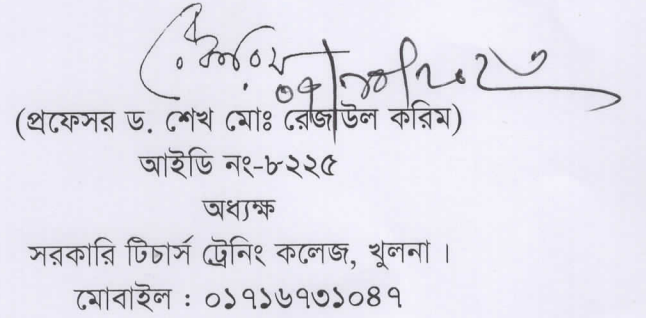 (প্রফেসর ড. শেখ মোঃ রেজাউল করিম)
আইডি নং-৮২২৫
অধ্যক্ষ
সরকারি টিচার্স ট্রেনিং কলেজ, খুলনা ।
মোবাইল : ০১৭১৬৭৩১০৪৭